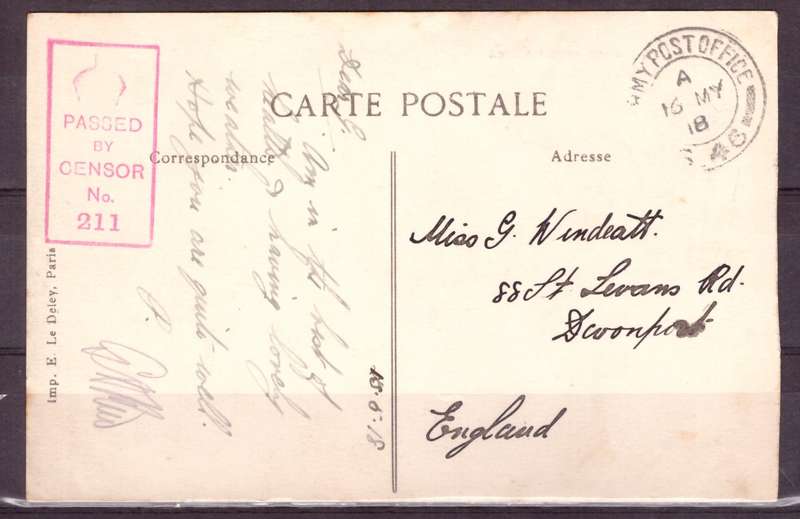 CARTE POSTALE
Correspondance
Adresse
PASSED
BY
CENSOR
No.
211
ARMY POST OFFICE
A
16 MY
18
46
Dear G.
Am in the best of
health & having lovely
weather.
Hope you are quite well.
P.
15.5.18
Miss G. Windeatt.
88 St Levans Rd.
Devonport
England
Imp. E. Le Deley, Paris